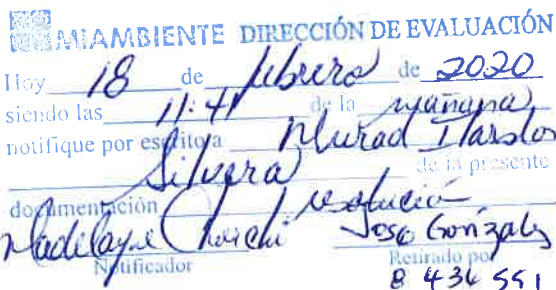 MIAMBIENTE DIRECCIÓN DE EVALUACIÓN
Hoy 18 de febrero de 2020
siendo las 11:41 de la mañana
notifique por escrito a Murad
Silvera de la presente
documentación resolución
José González
Notificador Retirado por
8 436 551